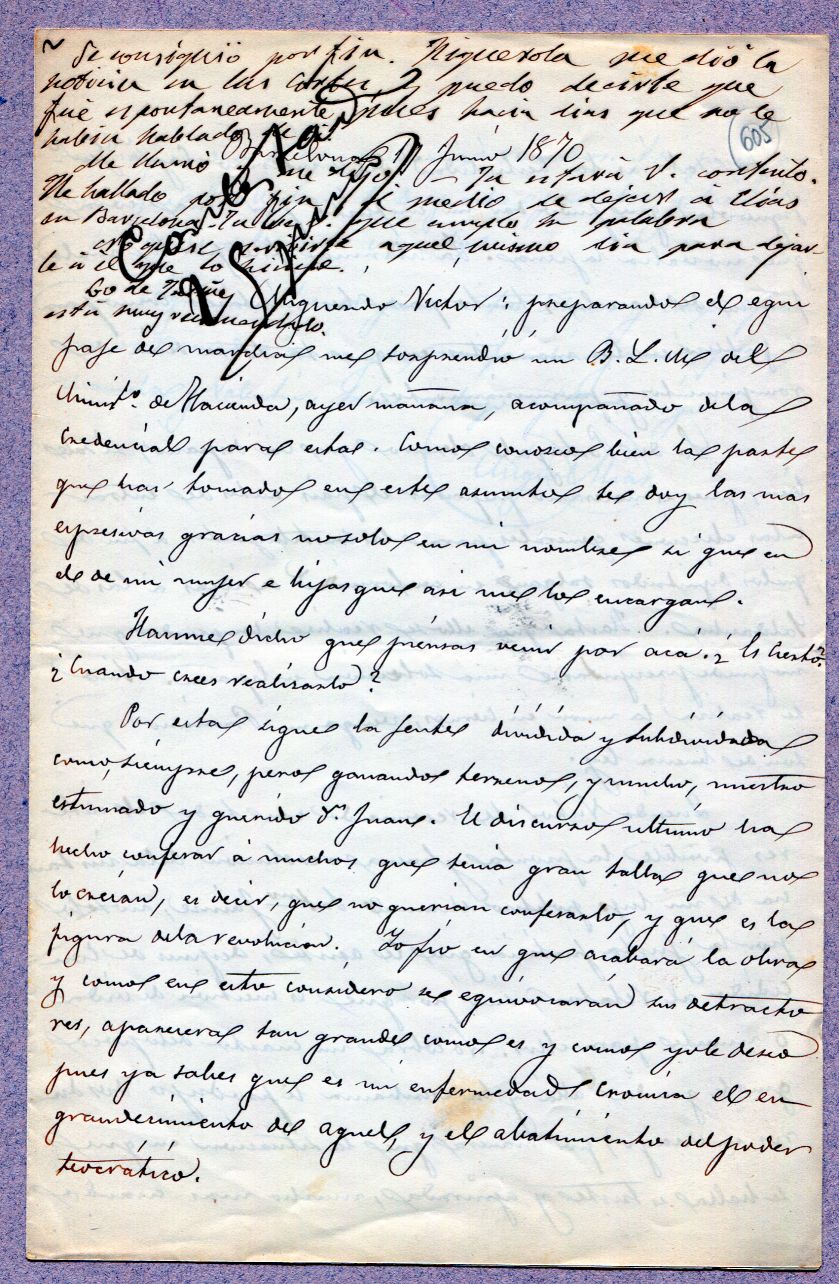 Se consiguió por fin. Figuerola me dió la
noticia en las Cortes y puedo decirte que
fué espontaneamente pues hacia dias que no le
habia hablado
605
Barcelona 17 Junio 1870
Me llamó me dijo — Ya estará V. contento.
He hallado por fin el medio de dejar á Elías
en Barcelona. que cumplo mi palabra
escribirte aquel mismo dia para dejar-
le á él que lo hiciese.
Lo de
está muy recomendado.
Contestad
Junio
Mi querido Victor: preparando el equi
paje de marcha me sorprendió un B. L. M. del
Minist.º de Hacienda, ayer mañana, acompañado de la
credencial para esta. Como conozco bien la parte
que has tomado en este asunto te doy las mas
espresivas gracias no solo en mi nombre si que en
el de mi mujer e hijas que asi me lo encargan.
Hanme dicho que piensas venir por acá. ¿Es cierto?
¿Cuando crees realizarlo?
Por esta sigue la gente dividida y subdividida
como siempre, pero ganando terreno, y mucho, nuestro
estimado y querido Dn Juan. El discurso ultimo ha
hecho confesar á muchos que tenia gran talla que no
lo creían, es decir, que no querian confesarlo, y que es la
figura de la revolucion. Yo fio en que acabará la obra
y como en esto considero se equivocarán sus detracto
res, aparecera tan grande como es y como yo le deseo
pues ya sabes que es mi enfermedad cronica el en
grandecimiento de aquel, y el abatimiento del poder
teocrático.